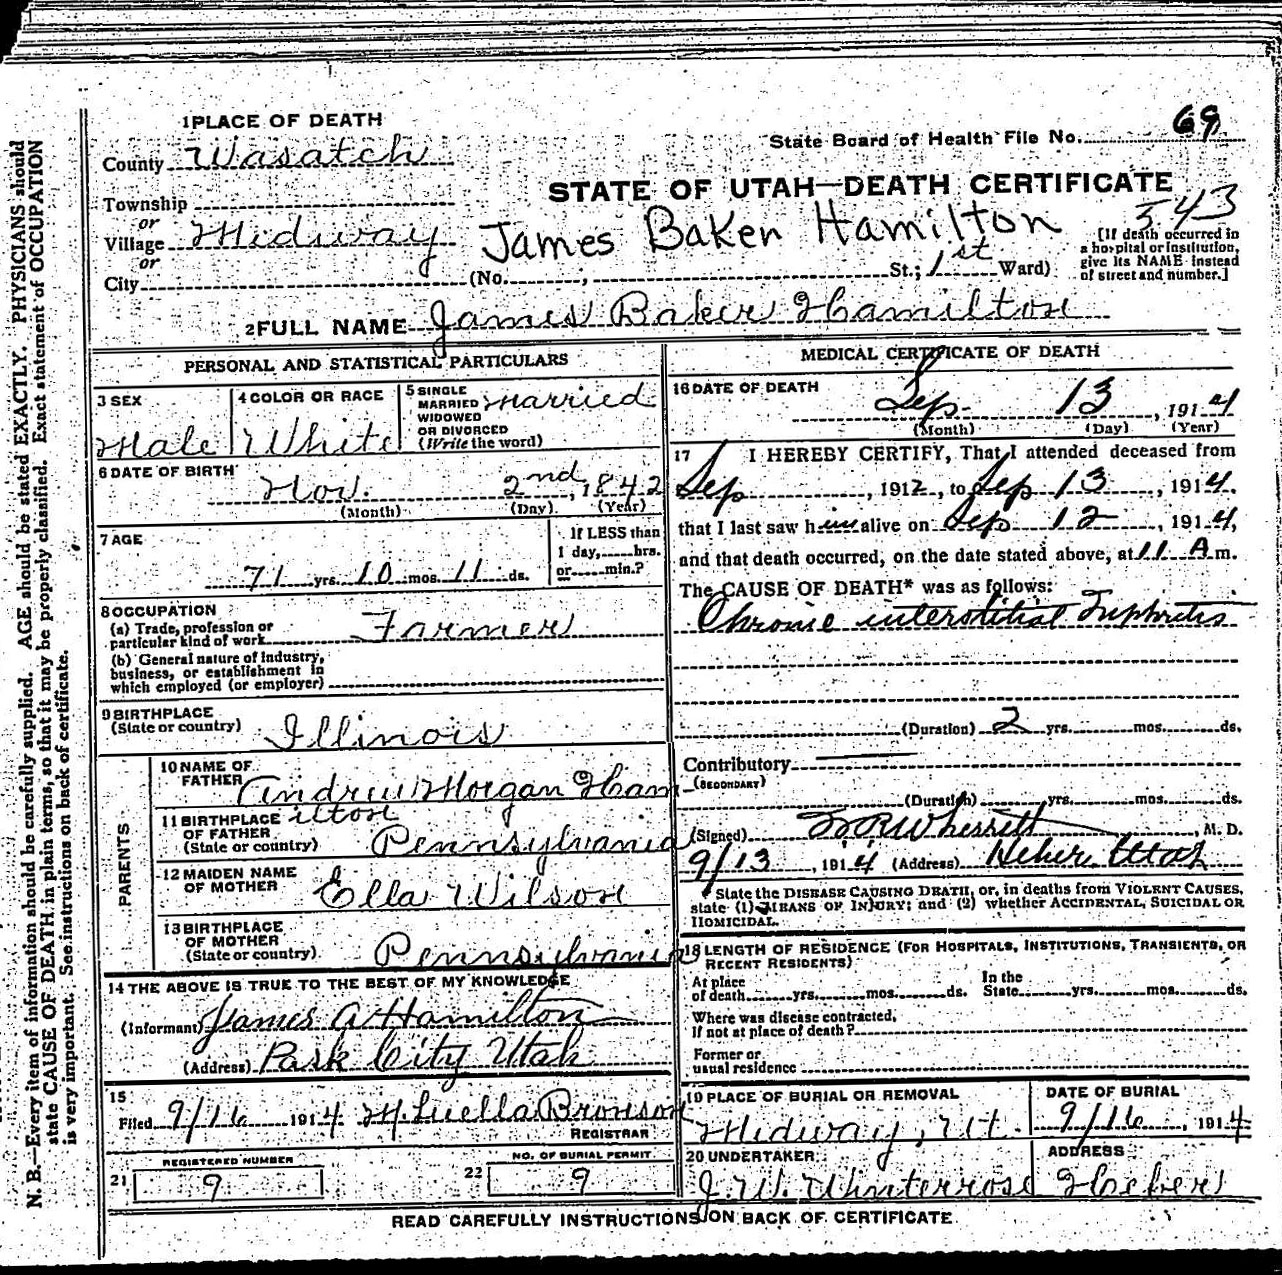 1 PLACE OF DEATH
County Wasatch
Township
or
Village Midway
or
City
State Board of Health File No. 69
STATE OF UTAH—DEATH CERTIFICATE
543
James Baken Hamilton
(No. ; St.; 1st Ward)
[If death occurred in
a hospital or institution,
give its NAME instead
of street and number.]
2 FULL NAME James Baker Hamilton
PERSONAL AND STATISTICAL PARTICULARS
3 SEX
Male
4 COLOR OR RACE
White
5 SINGLE
MARRIED
WIDOWED
OR DIVORCED
(Write the word)
Married
6 DATE OF BIRTH
Nov. 2nd, 1842
(Month) (Day) (Year)
7 AGE
71 yrs. 10 mos. 11 ds.
If LESS than
1 day, hrs.
or min.?
8 OCCUPATION
(a) Trade, profession or
particular kind of work Farmer
(b) General nature of industry,
business, or establishment in
which employed (or employer)
9 BIRTHPLACE
(State or country) Illinois
PARENTS
10 NAME OF
FATHER Andrew Morgan Ham
ilton
11 BIRTHPLACE
OF FATHER
(State or country) Pennsylvania
12 MAIDEN NAME
OF MOTHER Ella Wilson
13 BIRTHPLACE
OF MOTHER
(State or country) Pennsylvania
14 THE ABOVE IS TRUE TO THE BEST OF MY KNOWLEDGE
(Informant) James A Hamilton
(Address) Park City Utah
15
Filed 9/16 1914 M. Luella Bronson
REGISTRAR
REGISTERED NUMBER
21 9
NO. OF BURIAL PERMIT
22 9
MEDICAL CERTIFICATE OF DEATH
16 DATE OF DEATH
Sep. 13, 1914
(Month) (Day) (Year)
17 I HEREBY CERTIFY, That I attended deceased from
Sep, 1912, to Sep 13, 1914,
that I last saw him alive on Sep 12, 1914,
and that death occurred, on the date stated above, at 11 A m.
The CAUSE OF DEATH* was as follows:
Chronic interstitial Nephritis
(Duration) 2 yrs. mos. ds.
Contributory
(SECONDARY)
(Duration) yrs. mos. ds.
(Signed) Wherritt, M. D.
9/13, 1914 (Address) Heber, Utah
* State the DISEASE CAUSING DEATH, or, in deaths from VIOLENT CAUSES,
state (1) MEANS OF INJURY; and (2) whether ACCIDENTAL, SUICIDAL OR
HOMICIDAL.
18 LENGTH OF RESIDENCE (FOR HOSPITALS, INSTITUTIONS, TRANSIENTS, OR
RECENT RESIDENTS)
At place
of death yrs. mos. ds.
In the
State yrs. mos. ds.
Where was disease contracted,
If not at place of death?
Former or
usual residence
19 PLACE OF BURIAL OR REMOVAL
Midway, Ut.
DATE OF BURIAL
9/16, 1914
20 UNDERTAKER
J. W. Winterrose
ADDRESS
Heber
READ CAREFULLY INSTRUCTIONS ON BACK OF CERTIFICATE
N. B.—Every item of information should be carefully supplied. AGE should be stated EXACTLY. PHYSICIANS should
state CAUSE OF DEATH in plain terms, so that it may be properly classified. Exact statement of OCCUPATION
is very important. See instructions on back of certificate.